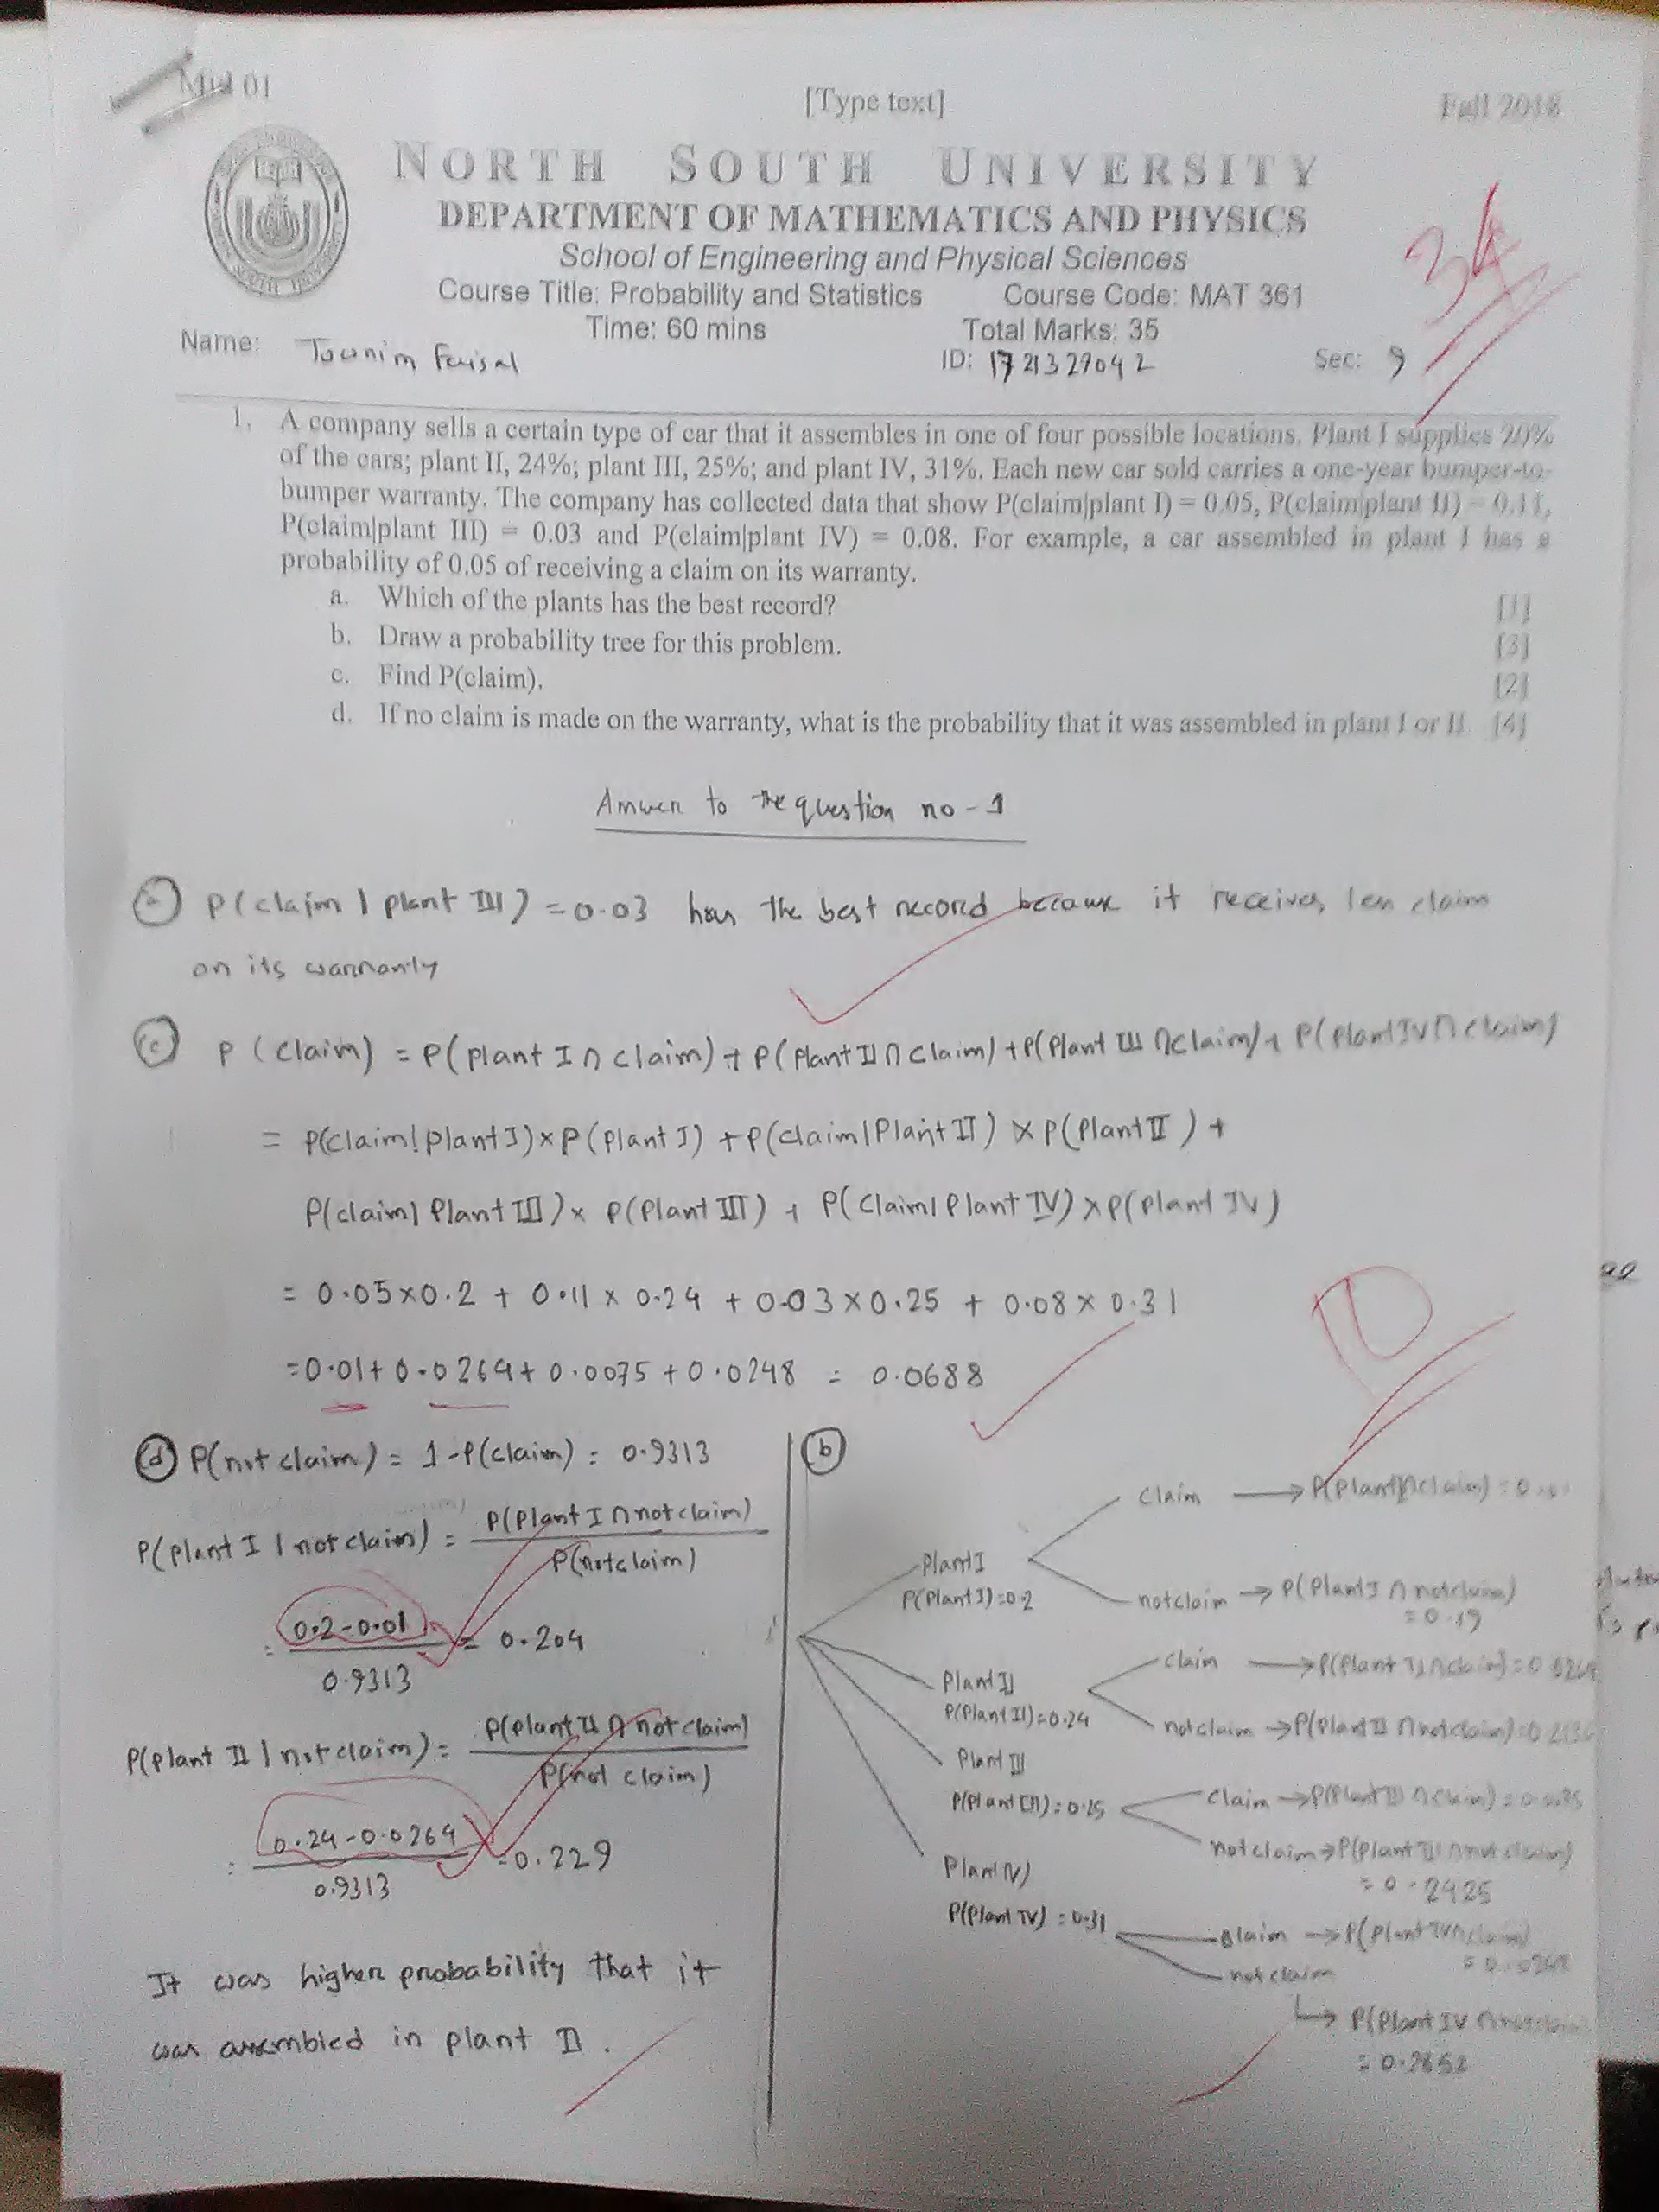 Mid 01
[Type text]
Fall 2018
NORTH SOUTH UNIVERSITY
DEPARTMENT OF MATHEMATICS AND PHYSICS
School of Engineering and Physical Sciences
Course Title: Probability and Statistics Course Code: MAT 361
Time: 60 mins Total Marks: 35
34
Name: Faisal ID: 1721329042 Sec: 9
1. A company sells a certain type of car that it assembles in one of four possible locations. Plant I supplies 20%
of the cars; plant II, 24%; plant III, 25%; and plant IV, 31%. Each new car sold carries a one-year bumper-to-
bumper warranty. The company has collected data that show P(claim|plant I) = 0.05, P(claim|plant II) = 0.11,
P(claim|plant III) = 0.03 and P(claim|plant IV) = 0.08. For example, a car assembled in plant I has a
probability of 0.05 of receiving a claim on its warranty.
a. Which of the plants has the best record? [1]
b. Draw a probability tree for this problem. [3]
c. Find P(claim). [2]
d. If no claim is made on the warranty, what is the probability that it was assembled in plant I or II. [4]
Answer to the question no - 1
a P(claim | plant III) = 0.03 has the best record because it receives less claim
on its warranty
c P(claim) = P(plant I ∩ claim) + P(Plant II ∩ Claim) + P(Plant III ∩ Claim) + P(Plant IV ∩ Claim)
= P(claim|plant I) × P(plant I) + P(claim|Plant II) × P(Plant II) +
P(claim| Plant III) × P(Plant III) + P(Claim| Plant IV) × P(plant IV)
= 0.05×0.2 + 0.11 × 0.24 + 0.03×0.25 + 0.08 × 0.31
10
= 0.01 + 0.0264 + 0.0075 + 0.0248 = 0.0688
d P(not claim) = 1 - P(claim) = 0.9313
P(plant I | not claim) = P(Plant I ∩ not claim)
P(not claim)
= 0.2 - 0.01 = 0.204
0.9313
P(plant II | not claim) = P(plant II ∩ not claim)
P(not claim)
= 0.24 - 0.0264 = 0.229
0.9313
It was higher probability that it
was assembled in plant II.
b
claim → P(Plant I ∩ claim) = 0.01
Plant I
P(Plant I) = 0.2
not claim → P(Plant I ∩ not claim)
= 0.19
claim → P(Plant II ∩ claim) = 0.0264
Plant II
P(Plant II) = 0.24
not claim → P(Plant II ∩ not claim) = 0.2136
Plant III
P(Plant III) = 0.25
claim → P(Plant III ∩ claim) = 0.0075
not claim → P(Plant III ∩ not claim)
= 0.2425
Plant IV
P(Plant IV) = 0.31
claim → P(Plant IV ∩ claim)
= 0.0248
not claim
→ P(Plant IV ∩ not claim)
= 0.2852